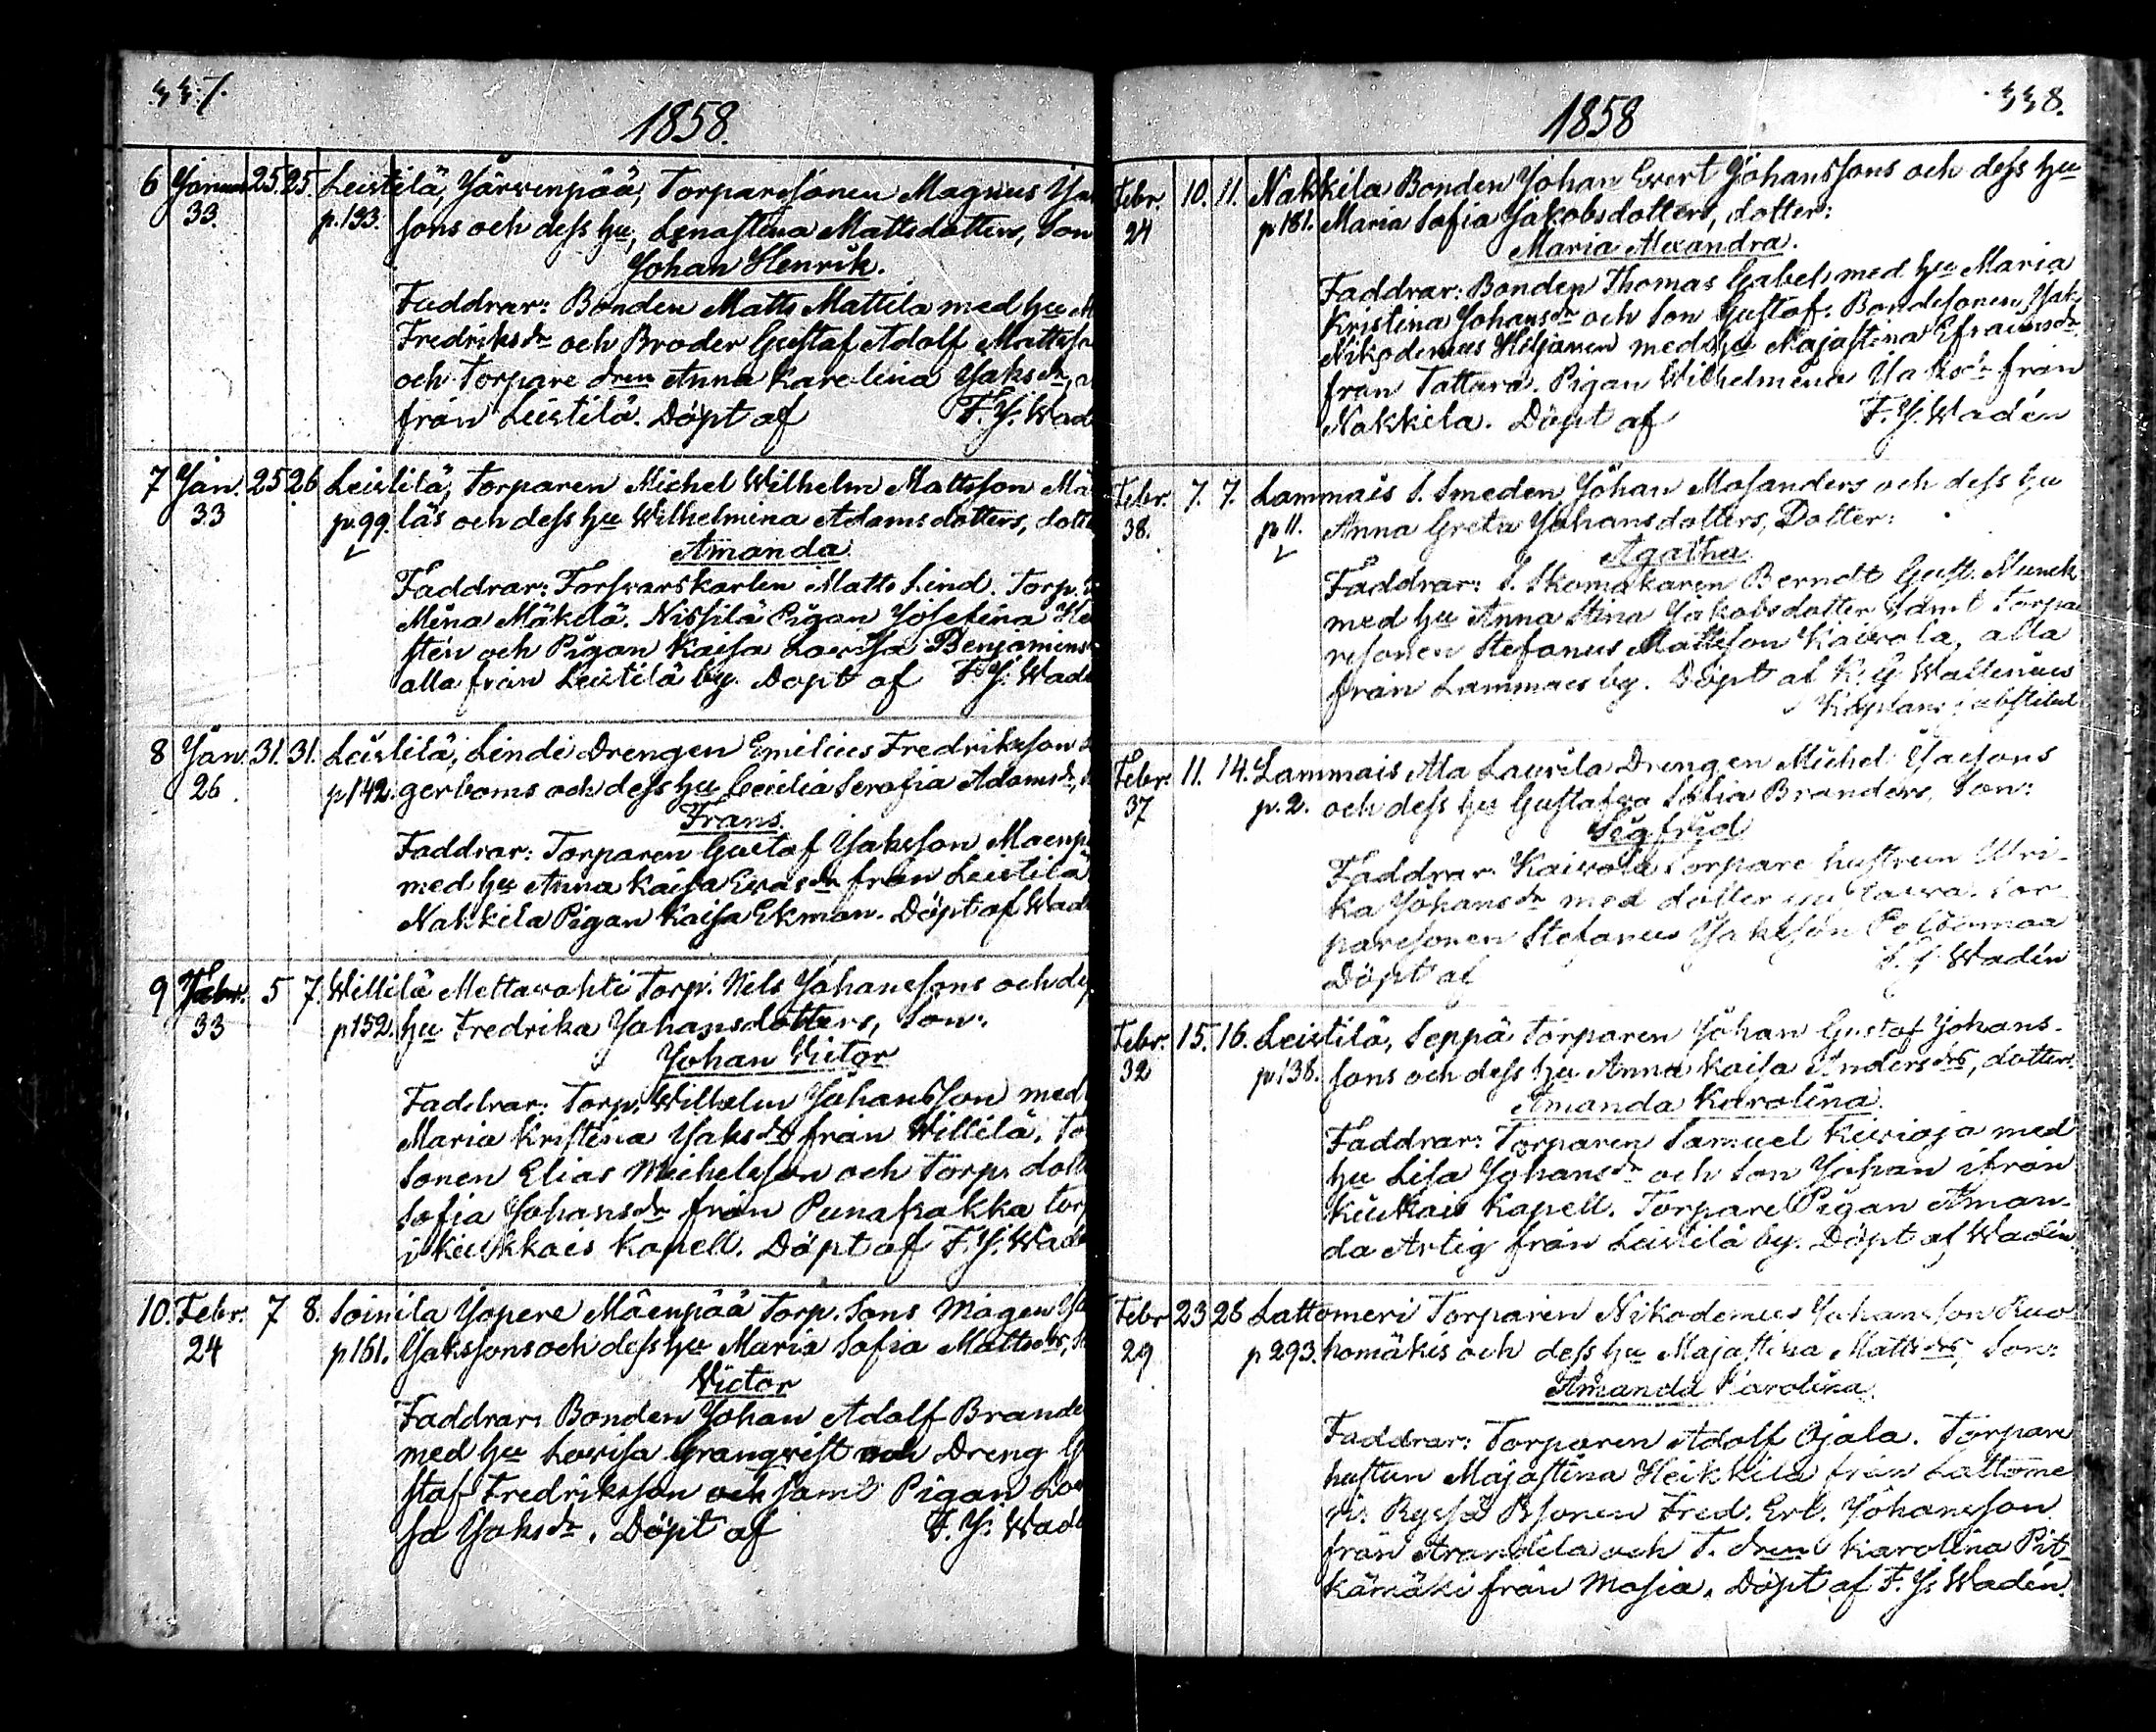 337.
1858.
6 Januari 25. 25. Leistilä, Järvenpää, Torparesonen Magnus
33. p. 133. sons och dess hu, Lenastina Mattsdotters, Son
Johan Henrik.
Faddrar: Bonden Matts Mattila med hu
Fredriksdr och Broder Gustaf Adolf Mattsso
och Torpare dren Anna Karolina Jaksdr,
från Leistilä. Döpt af F. J. Wad
7 Jan. 25 26 Leistilä, Torparen Michel Wilhelm Mattsson Mä
33 p. 99. läs och dess hu Wilhelmina Adamsdotters, dott
Amanda
Faddrar: Forsvarskarlen Matts Lind. Torp.
Mina Mäkelä. Nissilä Pigan Josefina He
stén och Pigan Kaisa Lovisa Benjamins
alla från Leistilä by. Döpt af F. J. Wad
8 Jan. 31. 31. Leistilä, Lindi Drengen Emilius Fredriksson
26. p. 142. gerboms och dess hu Cecilia Serafia Adamsdr,
Frans.
Faddrar: Torparen Gustaf Jaksson Maenp
med hu Anna Kaisa Evasdr från Leistilä
Nakkila Pigan Kaisa Ekman. Döpt af Wad
9 Febr. 5 7. Willilä Mettavahti Torp. Nils Johanssons och de
33 p 152. hu Fredrika Johansdotters, Son:
Johan Victor
Faddrar: Torp. Wilhelm Johansson med
Maria Kristina Jaksdr från Willilä. To
sonen Elias Michelsson och Torp. dott
Sofia Johansdr från Punapakka torp
i Kiukkais Kapell. Döpt af F. J. Wad
10. Febr. 7 8. Soinila Yopere Mäenpää Torp. Sons Mågen
24 p 161. Jakssons och dess hu Maria Sofia Mattsdrs,
Victor
Faddrar: Bonden Johan Adolf Brande
med hu Lovisa Granqvist och Dreng G
staf Fredriksson och samt Pigan Lov
sa Jaksdr. Döpt af F. J. Wad
338.
1858
Febr. 10. 11. Nakkila Bonden Johan Evert Johanssons och dess hu
24 p 181. Maria Sofia Jakobsdotters, dotter:
Maria Alexandra.
Faddrar: Bonden Thomas Gabel med hu Maria
Kristina Johansdr och Son Gustaf. Bondesonen Jak
Nikodemus Hiljanen med hu Majastina Efraimsdr
från Tattara. Pigan Wilhelmina från
Nakkila. Döpt af F. J. Wadén
Febr. 7. 7. Lammais S. Smeden Johan Mosanders och dess hu
38. p 11. Anna Greta Johansdotters, Dotter:
Agatha
Faddrar: S. Skomakaren Berndt Gust. Munck
med hu Anna Stina Jakobsdotter samt Torpa
resonen Stefanus Mattsson Kaivola, alla
från Lammais by. Döpt af K. G. Wallenius
Kaplans
Febr. 11. 14. Lammais Ala Laurila Drengen Michel Jacsons
37 p. 2. och dess hu Gustafva Sofia Branders, Son:
Sigfrid
Faddrar. Kaivola Torpare hustrun Ulri-
ka Johansdr med dotter Lovisa. Tor-
paresonen Stefanus Jaksson
Döpt af F. J. Wadén
Febr. 15. 16. Leistilä, Seppä Torparen Johan Gustaf Johans-
32 p. 138. sons och dess hu Anna Kaisa Andersdrs, dotter:
Amanda Karolina.
Faddrar: Torparen Samuel Kivioja med
hu Lisa Johansdr och Son Johan ifrån
Kiukais Kapell. Torpare Pigan Aman-
da Artig från Leistilä by. Döpt af Wadén.
Febr 23 28 Lattomeri Torparen Nikodemus Johansson Ruo-
29 p 293. homäkis och dess hu Majastina Mattsdrs, Son:
Amanda Karolina.
Faddrar: Torparen Adolf Ojala. Torpare
hustrun Majastina Heikkilä från Lattome
ri. Ryssä Bsonen Fred. Erl. Johansson
från Arantila och T. dren Karolina Pit-
kämäki från Masia. Döpt af F. J. Wadén.